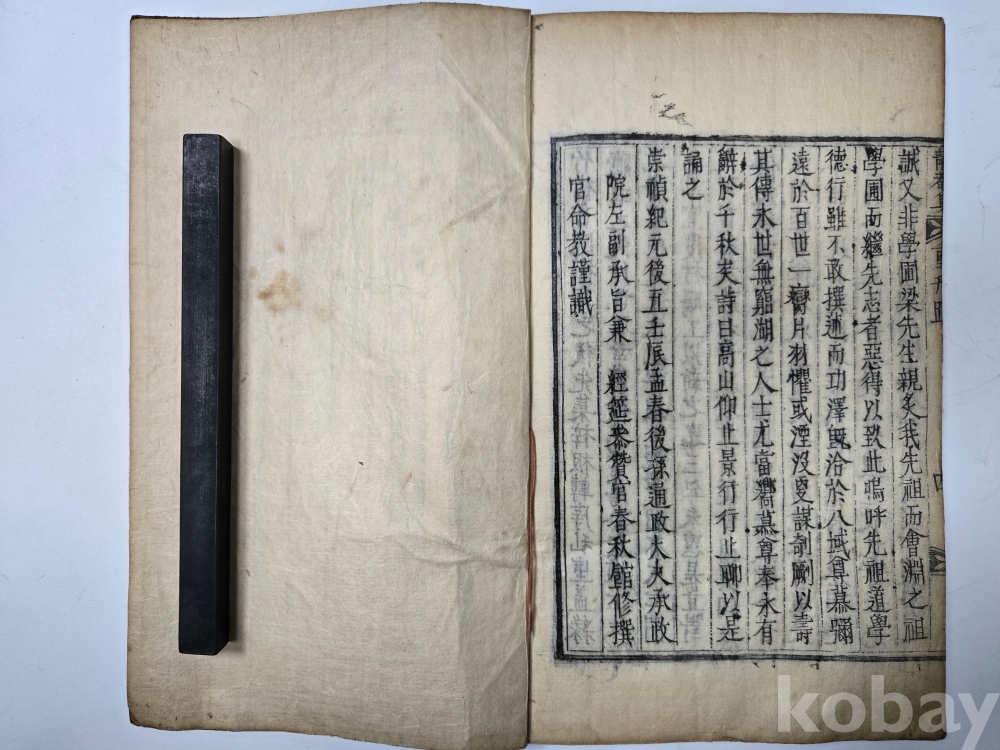 誠又非學圃梁先生親炙我先祖而會淵之祖
學圃而繼先志者惡得以致此嗚呼先祖道學
德行雖不敢撰述而功澤旣洽於八域尊慕彌
遠於百世一臠片羽懼或湮沒叟謀剞劂以壽
其傳永世無窮湖之人士尤當嚮慕尊奉永有
辭於千秋矣詩曰高山仰止景行行止聊以是
誦之
崇禎紀元後五壬辰孟春後孫通政大夫承政
院左副承旨兼 經筵叅贊官春秋館修撰
官命敎謹識
四
kobay